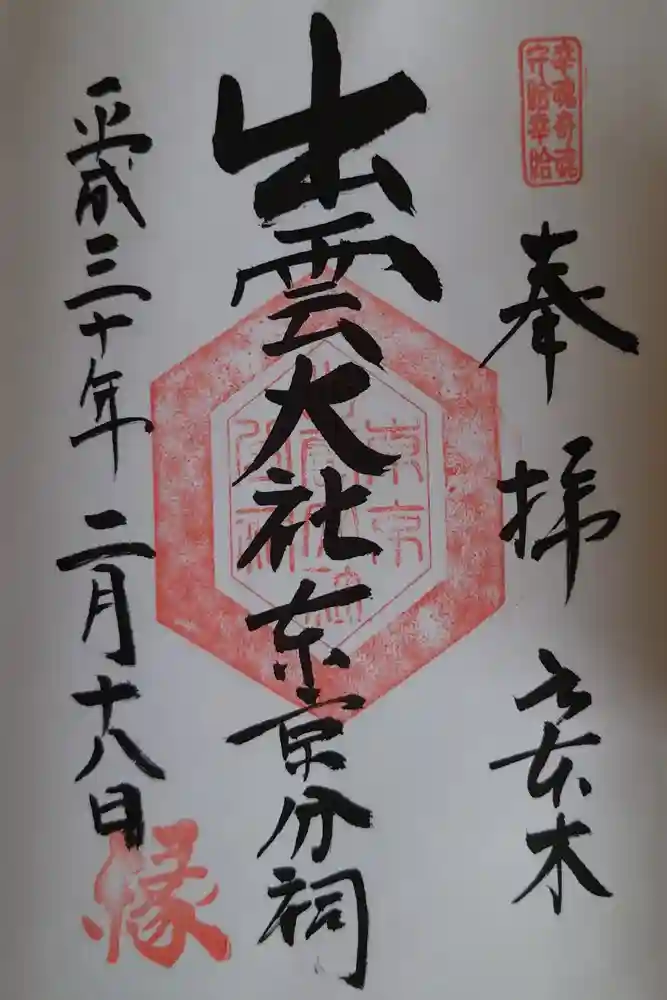 幸魂奇魂
守給幸給
奉拝 六本木
出雲大社東京分祠
出雲大社
東京
分祠
平成三十年二月十八日
縁